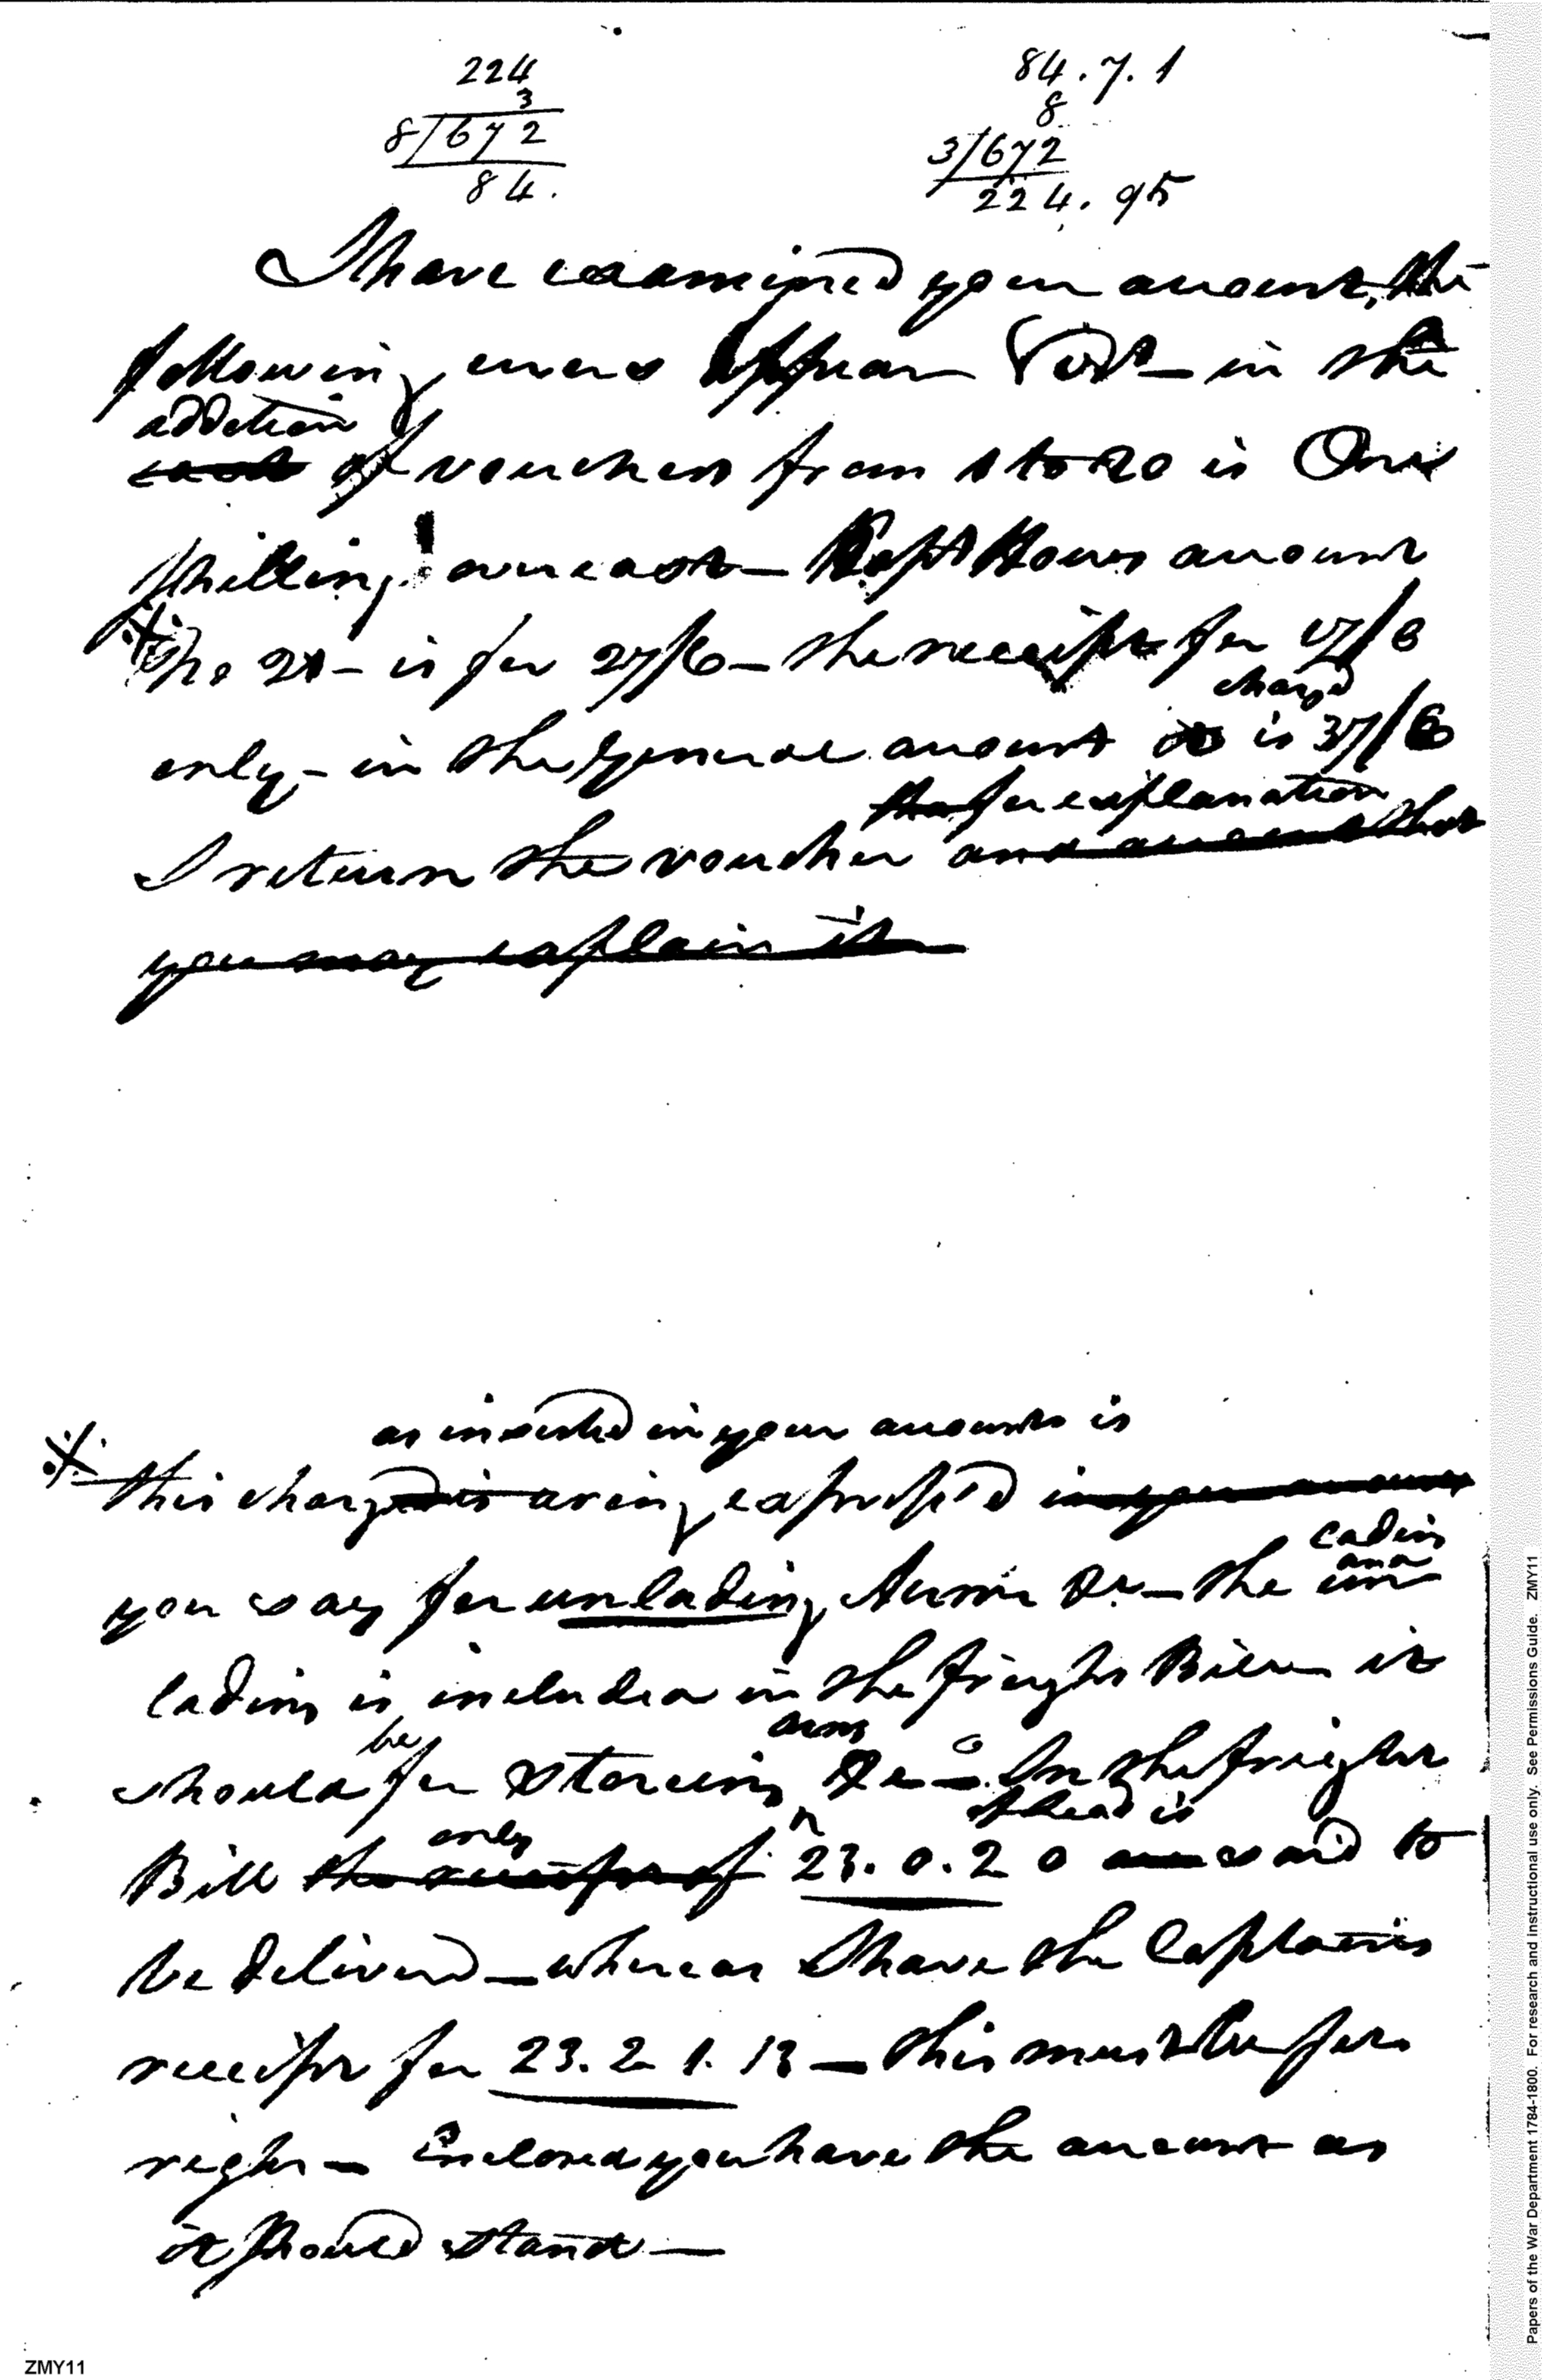 224 84.7.1
3 8
8/672 3/672
84. 224.95
I have examined your account, the
following errors appear Vizt— in the
addition
cast of vouchers from 1 to 20 is One
shilling overcast — Capt Hows account
No 21 — is for 27/6 — the receipt for 17/6
chargd
only — in the general account it is 37/6
for explanation
I return the voucher and account that
you may explain it
as inserted in your accounts is
this charge is wrong expressed in your account
lading
and
you say for unlading Arms &c — the un
lading is included in the freight Bill — it
be arms
should for storeing &c — In the freight
only of lead is
Bill the receipt of 23.0.20 are said to
be delivered — whereas I have the Captains
receipt for 23.2.1.13 — this must be put
right — Enclosed you have the account as
it should stand —
Papers of the War Department 1784-1800. For research and instructional use only. See Permissions Guide. ZMY11
ZMY11